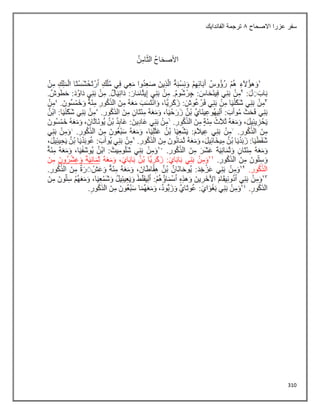 سفر عزرا الاصحاح ٨ ترجمة الفاندايك
اَلأَصْحَاحُ الثَّامِنُ
١وَهؤُلاَءِ هُمْ رُؤُوسُ آبَائِهِمْ وَنِسْبَةُ الَّذِينَ صَعِدُوا مَعِي فِي مُلْكِ أَرْتَحْشَسْتَا الْمَلِكِ مِنْ
بَابِلَ: ٢مِنْ بَنِي فِينَحَاسَ: جِرْشُومُ. مِنْ بَنِي إِيثَامَارَ: دَانِيآلُ. مِنْ بَنِي دَاوُدَ: حَطُّوشُ.
٣مِنْ بَنِي شَكَنْيَا مِنْ بَنِي فَرْعُوشَ: زَكَرِيَّا، وَانْتَسَبَ مَعَهُ مِنَ الذُّكُورِ مِئَةٌ وَخَمْسُونَ. ٤مِنْ
بَنِي فَحَثَ مُوآبَ: أَلِيهُوعِينَايُ بْنُ زَرَحْيَا، وَمَعَهُ مِئَتَانِ مِنَ الذُّكُورِ. ٥مِنْ بَنِي شَكَنْيَا: ابْنُ
يَحْزِيئِيلَ، وَمَعَهُ ثَلاَثُ مِئَةٍ مِنَ الذُّكُورِ. ٦مِنْ بَنِي عَادِينَ: عَابِدُ بْنُ يُونَاثَانَ، وَمَعَهُ خَمْسُونَ
مِنَ الذُّكُورِ. ٧مِنْ بَنِي عِيلاَمَ: يَشْعِيَا بْنُ عَثَلْيَا، وَمَعَهُ سَبْعُونَ مِنَ الذُّكُورِ. ٨وَمِنْ بَنِي
شَفَطْيَا: زَبَدْيَا بْنُ مِيخَائِيلَ، وَمَعَهُ ثَمَانُونَ مِنَ الذُّكُورِ. ٩مِنْ بَنِي يُوآبَ: عُوبَدْيَا بْنُ يَحِيئِيلَ،
وَمَعَهُ مِئَتَانِ وَثَمَانِيَةَ عَشَرَ مِنَ الذُّكُورِ. ١٠وَمِنْ بَنِي شَلُومِيثَ: ابْنُ يُوشَفْيَا، وَمَعَهُ مِئَةٌ
وَسِتُّونَ مِنَ الذُّكُورِ. ١١وَمِنْ بَنِي بَابَايَ: زَكَرِيَّا بْنُ بَابَايَ، وَمَعَهُ ثَمَانِيَةٌ وَعِشْرُونَ مِنَ
الذُّكُورِ. ١٢وَمِنْ بَنِي عَزْجَدَ: يُوحَانَانُ بْنُ هِقَّاطَانَ، وَمَعَهُ مِئَةٌ وَعَشَرَةٌ مِنَ الذُّكُورِ.
١٣وَمِنْ بَنِي أَدُونِيقَامَ الآخَرِينَ وَهذِهِ أَسْمَاؤُهُمْ: أَلِيفَلَطُ وَيَعِيئِيلُ وَشَمَعْيَا، وَمَعَهُمْ سِتُّونَ مِنَ
الذُّكُورِ. ١٤وَمِنْ بَنِي بِغْوَايَ: عُوتَايُ وَزَبُّودُ، وَمَعَهُمَا سَبْعُونَ مِنَ الذُّكُورِ.
310